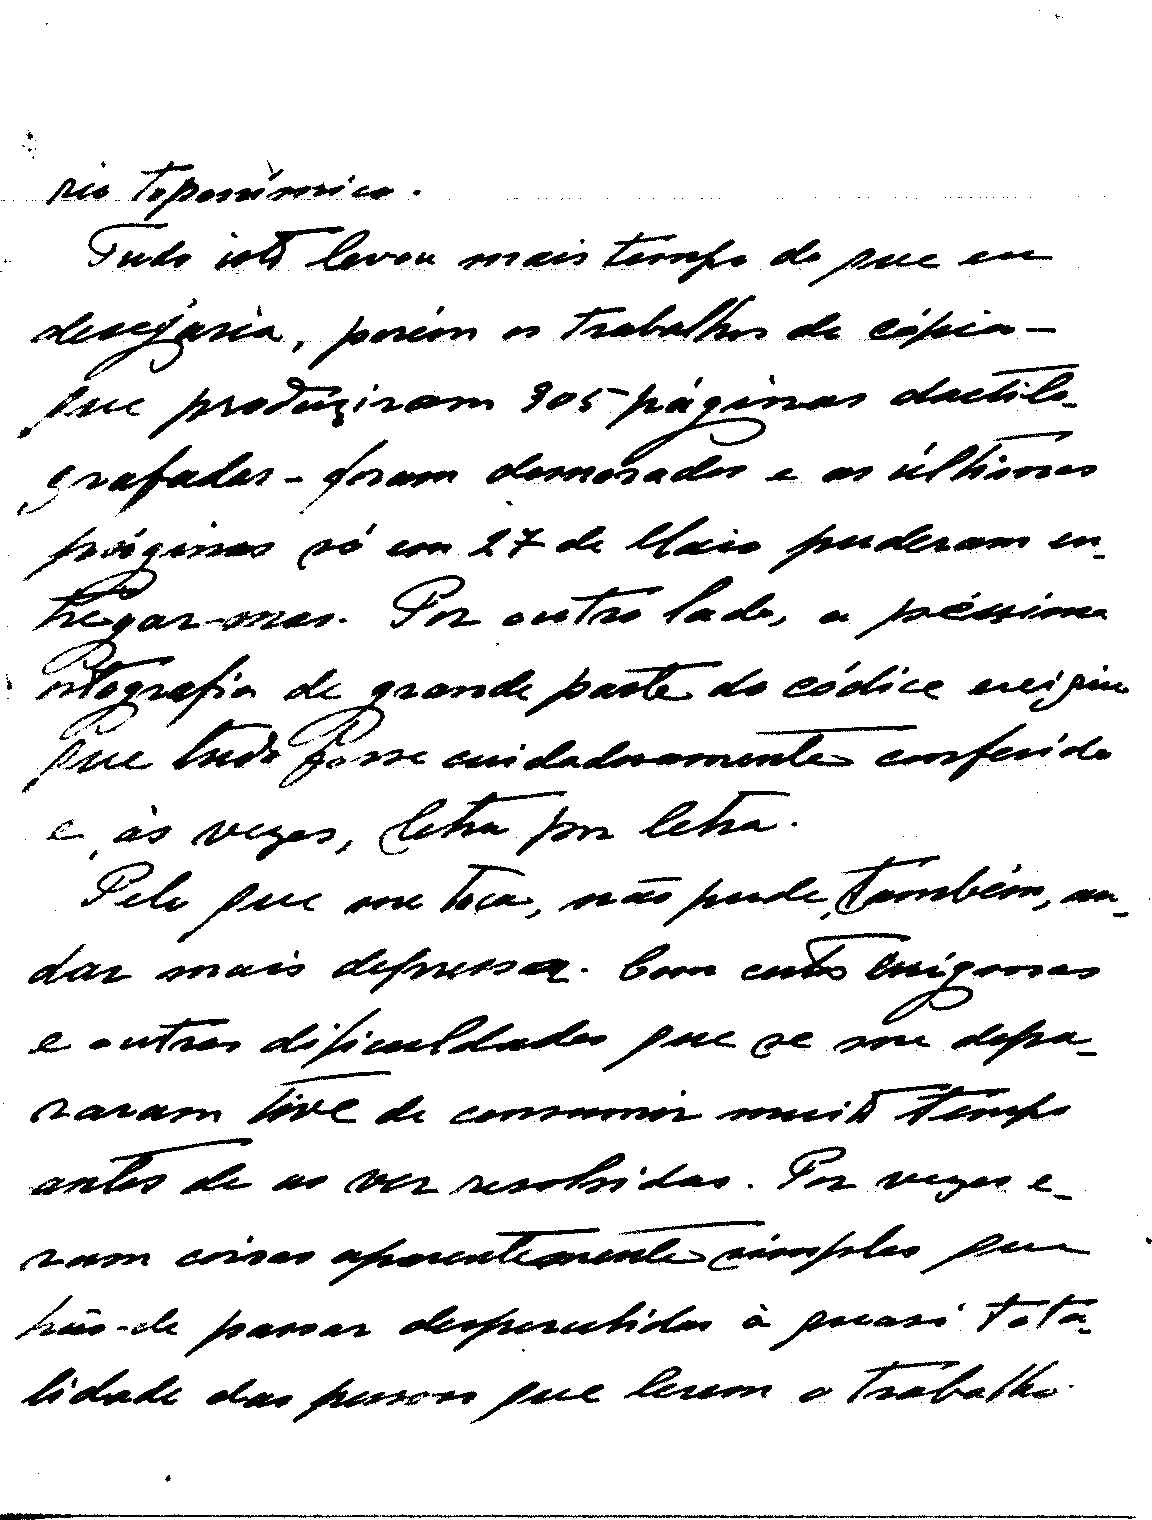 rio toponímico.
Tudo isto levou mais tempo do que eu
desejaria, porém os trabalhos de cópia —
que produziram 305 páginas dactilo-
grafadas — foram demorados e as últimas
páginas só em 27 de Maio puderam en-
tregar-mas. Por outro lado, a péssima
ortografia de grande parte do códice exigiu
que tudo fosse cuidadosamente conferido
e, às vezes, letra por letra.
Pelo que me toca, não pude, também, an-
dar mais depressa. Com certos enigmas
e outras dificuldades que se me depa-
raram tive de consumir muito tempo
antes de as ver resolvidas. Por vezes e-
ram coisas aparentemente simples que
hão-de passar despercebidas à quasi tota-
lidade das pessoas que lerem o trabalho.